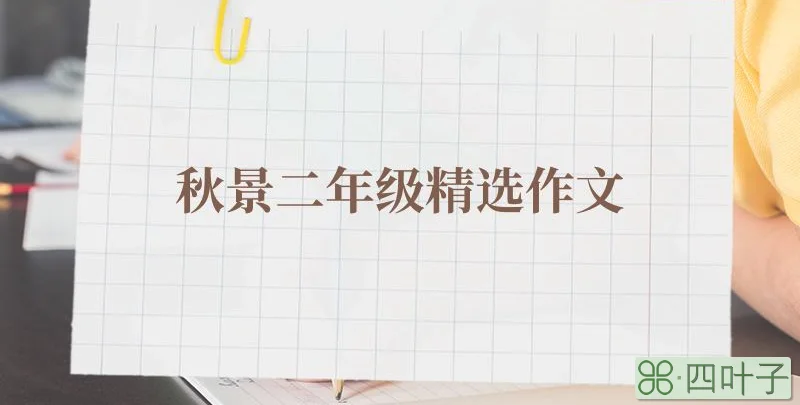 秋景二年级精选作文
⌘·四叶子